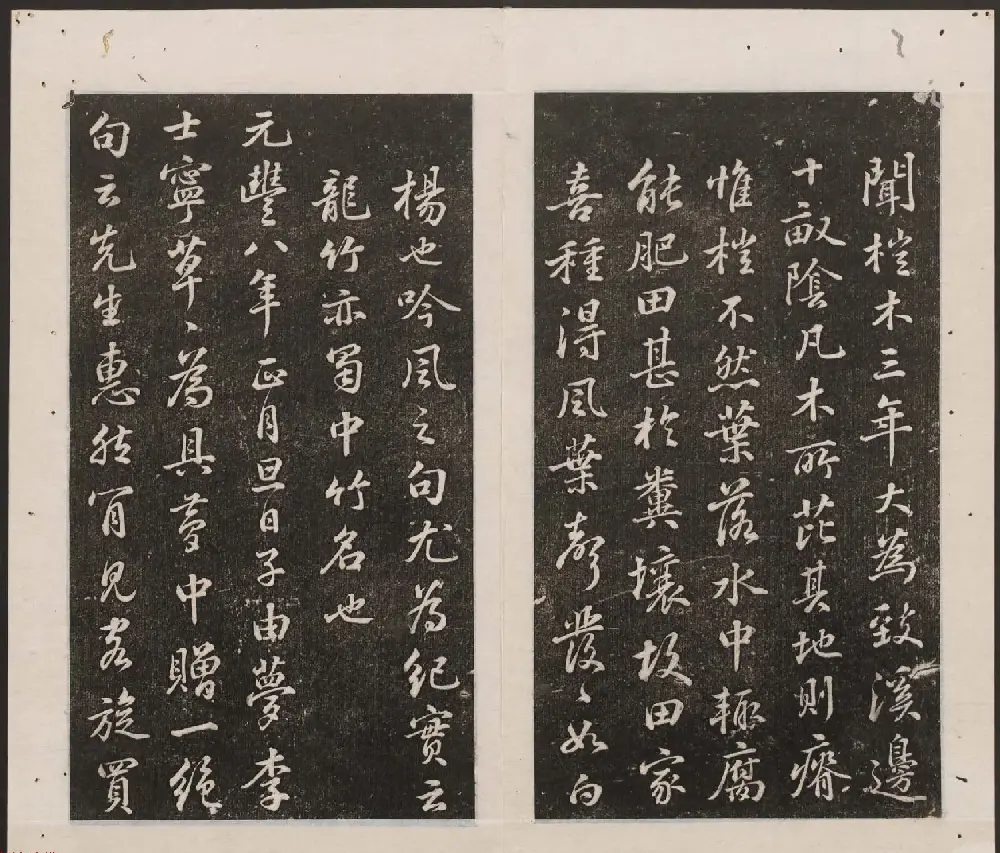 聞榿木三年大為致溪邊
十畝陰凡木所芘其地則瘠
惟榿不然葉落水中輒腐
能肥田甚於糞壤故田家
喜種得風葉聲發〻如白
楊也吟風之句尤為紀實云
龍竹亦蜀中竹名也
元豐八年正月旦日子由夢李
士寧草〻為具夢中贈一絕
句云先生惠然肯見客旋買